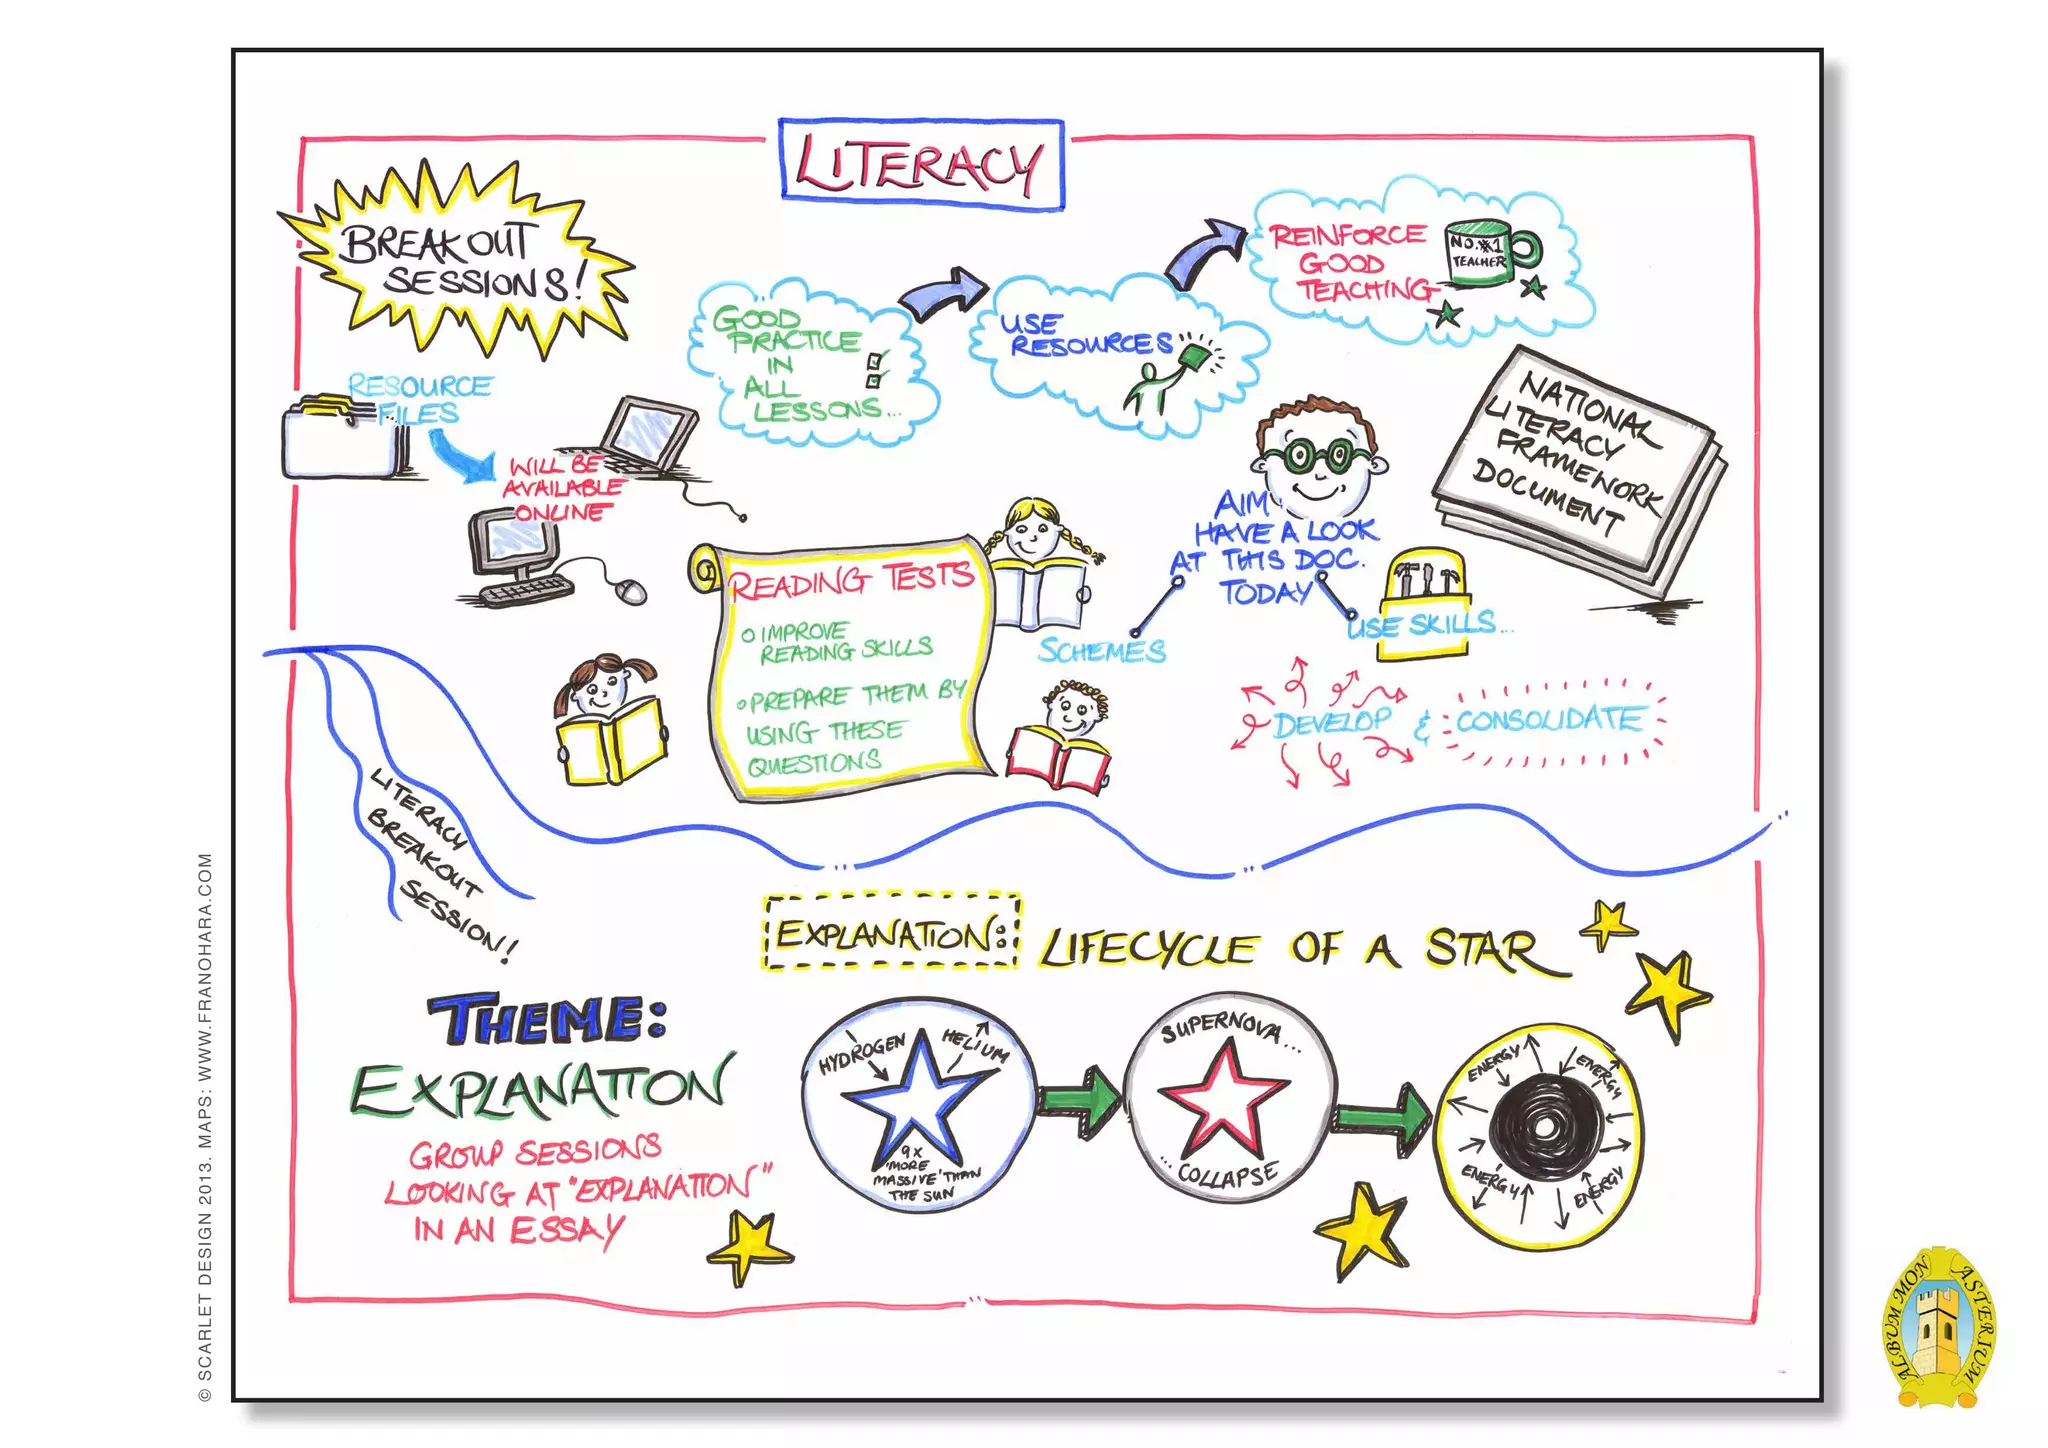 LITERACY
BREAKOUT
SESSIONS!
RESOURCE
FILES
WILL BE
AVAILABLE
ONLINE
GOOD
PRACTICE
IN
ALL
LESSONS...
USE
RESOURCES
REINFORCE
GOOD
TEACHING
NO.#1
TEACHER
NATIONAL
LITERACY
FRAMEWORK
DOCUMENT
AIM
HAVE A LOOK
AT THIS DOC.
TODAY
SCHEMES
USE SKILLS...
DEVELOP & CONSOLIDATE
READING TESTS
IMPROVE
READING SKILLS
PREPARE THEM BY
USING THESE
QUESTIONS
LITERACY
BREAKOUT
SESSION!
THEME:
EXPLANATION
GROUP SESSIONS
LOOKING AT "EXPLANATION"
IN AN ESSAY
EXPLANATION: LIFECYCLE OF A STAR
HYDROGEN
HELIUM
9X
'MORE
MASSIVE' THAN
THE SUN
SUPERNOVA...
...COLLAPSE
ENERGY
ENERGY
ENERGY
ENERGY
© SCARLET DESIGN 2013. MAPS: WWW.FRANOHARA.COM
ALBUM MONASTERIUM